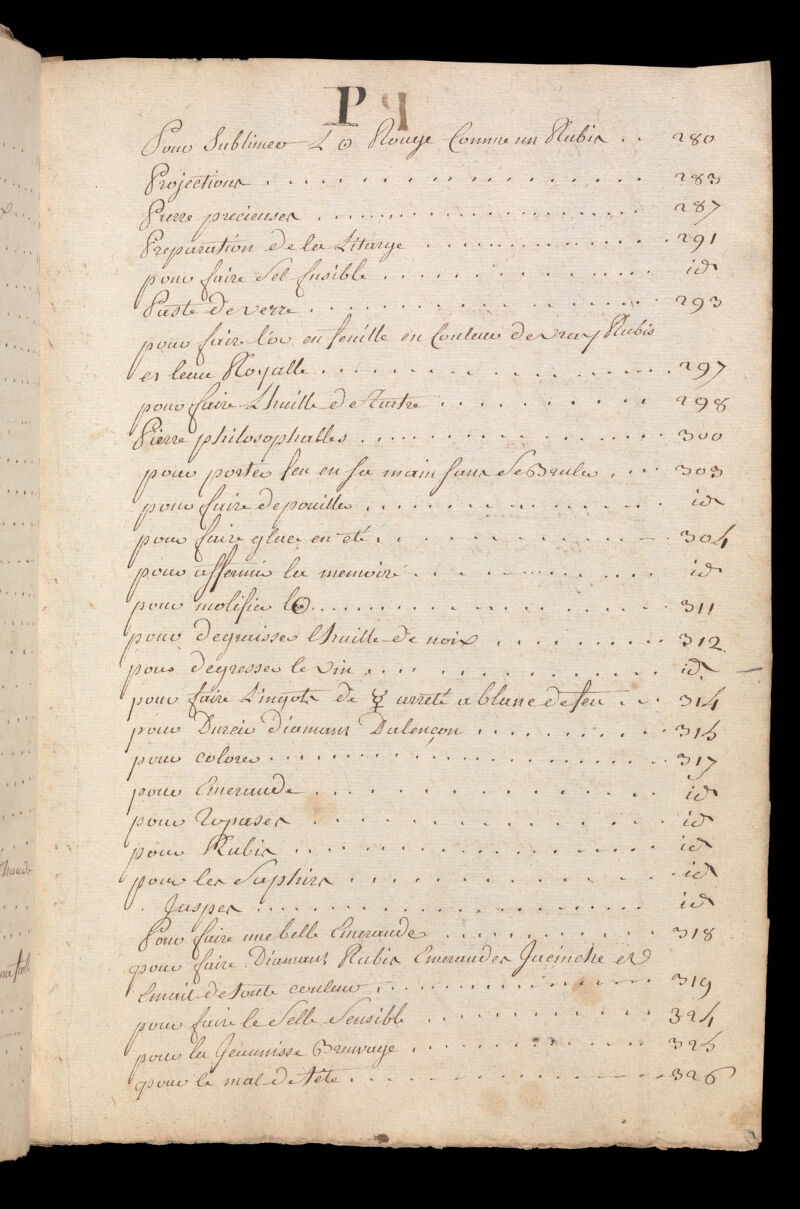 P
Pour Sublimer L ☉ Rouge Comme un Rubis . . 280
Projections . . . . . . . . . . 283
Pierre precieuses . . . . . . . . . . 287
Preparation de la Litarge . . . . . . . . . . 291
pour faire Sel fusible . . . . . . . . . . id
Paste de verre . . . . . . . . . . 293
pour faire l'or en feuille en Couleur de vray Rubis
et leau Royalle . . . . . . . . . . 297
pour faire Lhuille de Tartre . . . . . . . . . . 298
Pierre philosophalles . . . . . . . . . . 300
pour porter feu en sa main sans Se Bruler . . . . 303
pour faire depouille . . . . . . . . . . id
pour faire glace en eté . . . . . . . . . . 304
pour affermir la memoire . . . . . . . . . . id
pour molifier l☉ . . . . . . . . . . 311
pour deguisser lhuille de noix . . . . . . . . . . 312
pour degresser le vin . . . . . . . . . . id
pour faire Lingots de ☿ arreté a blanc de feu . . . 314
pour Durcir Diamant Dalençon . . . . . . . . . . 315
pour colorer . . . . . . . . . . 317
pour Emeraude . . . . . . . . . . id
pour Topases . . . . . . . . . . id
pour Rubis . . . . . . . . . . id
pour les Saphirs . . . . . . . . . . id
Jaspes . . . . . . . . . . id
Pour faire une belle Emeraude . . . . . . . . . . 318
pour faire Diamant Rubis Emeraudes Jacinthe et
Email de toute couleur . . . . . . . . . . 319
pour faire le Selle Sensible . . . . . . . . . . 324
pour la Jeaunisse Breuvage . . . . . . . . . . 325
pour le mal de tête . . . . . . . . . . 326